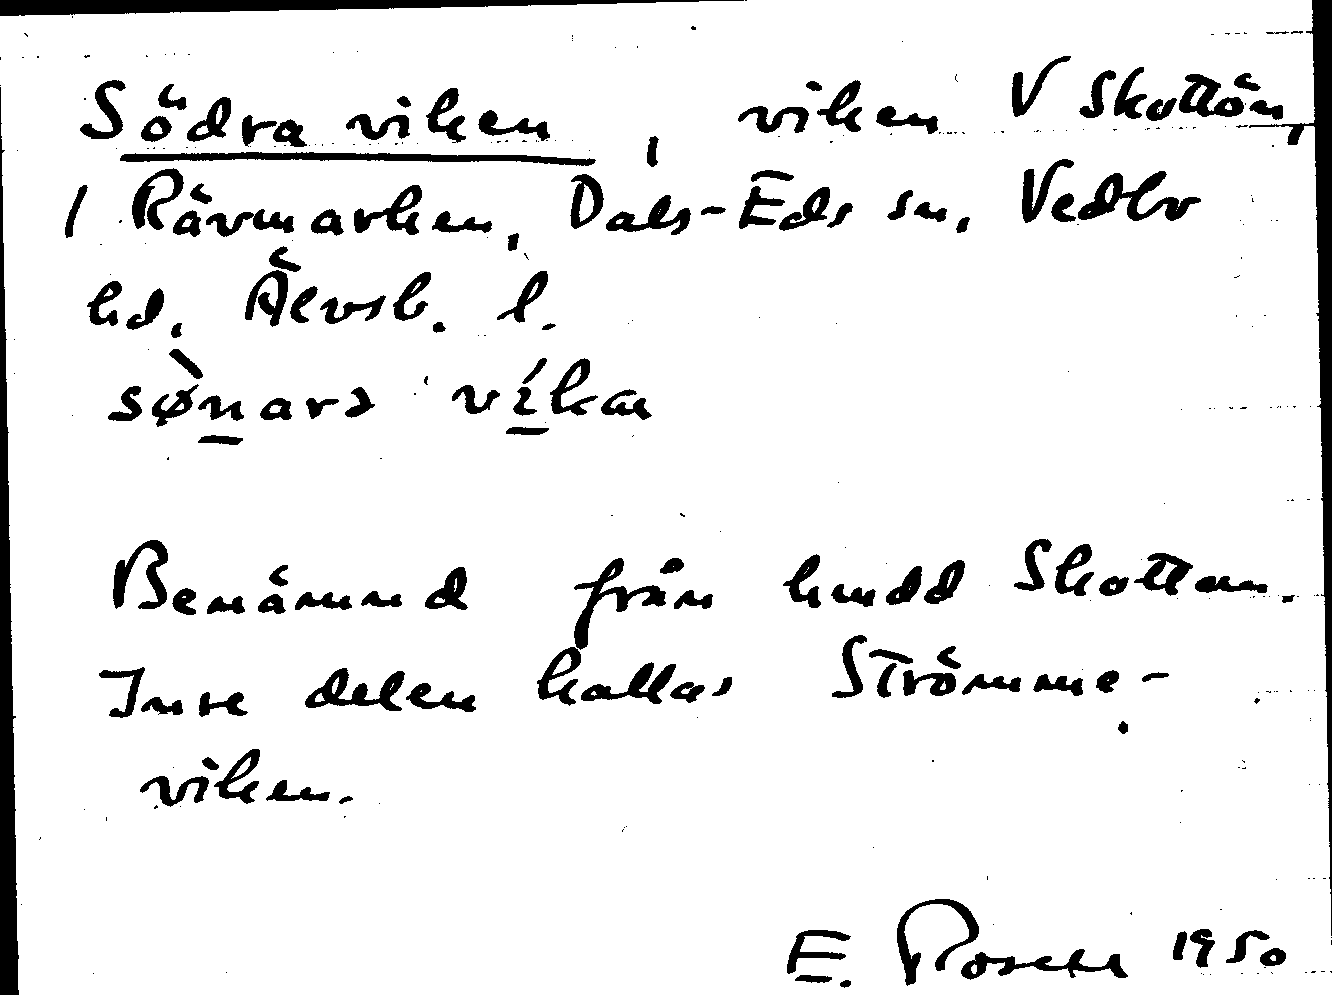 Södra viken, viken V Skottön,
i Rävmarken, Dals-Eds sn, Vedbo
hd, Älvsb. l.
sø̀narə víkan
Benämnd från hmdd Skottan.
Inre delen kallas Strömme-
viken.
E. Rosell 1950